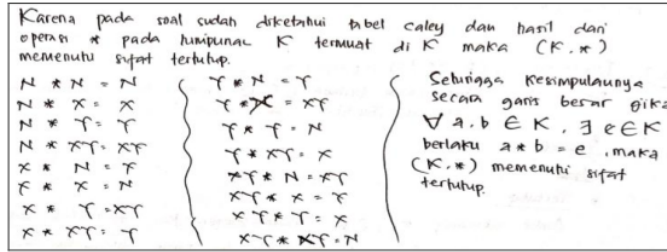 Karena pada soal sudah diketahui tabel caley dan hasil dari
operasi * pada himpunan K termuat di K maka (K,*)
memenuhi sifat tertutup.
N * N = N
N * X = X
N * Y = Y
N * XY = XY
X * N = X
X * X = N
X * Y = XY
X * XY = Y
Y * N = Y
Y * X = XY
Y * Y = N
Y * XY = X
XY * N = XY
XY * X = Y
XY * Y = X
XY * XY = N
Sehingga kesimpulannya
secara garis besar jika
∀ a, b ∈ K, ∃ e ∈ K
berlaku a * b = e, maka
(K,*) memenuhi sifat
tertutup.